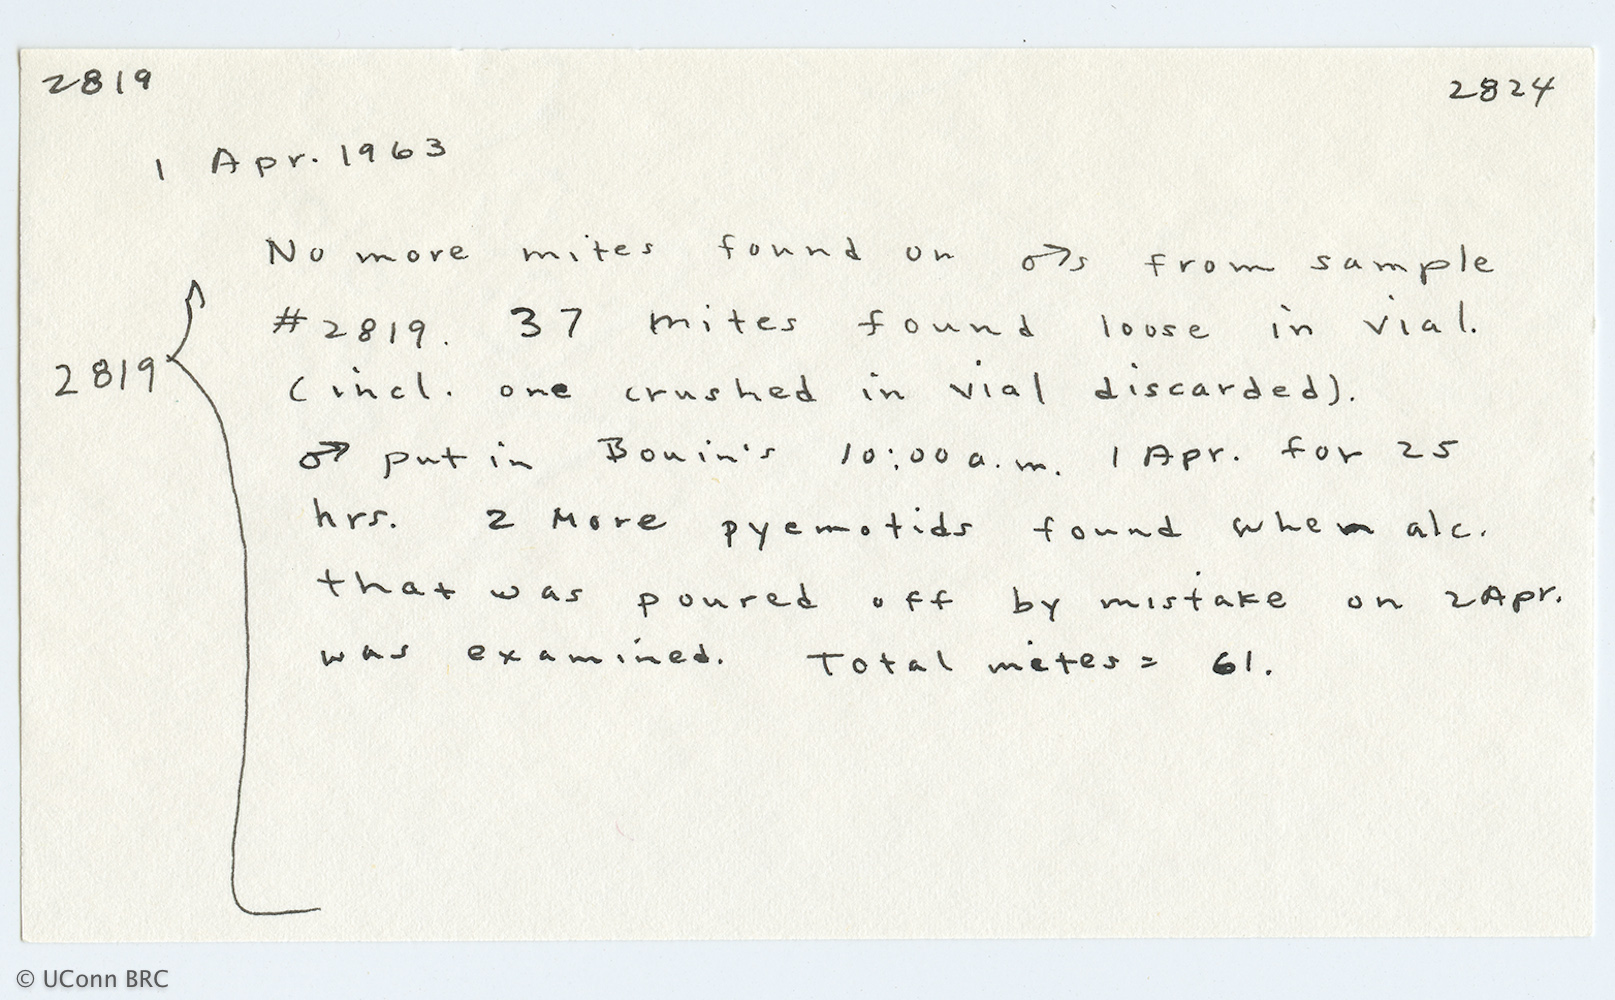 2819
2824
1 Apr. 1963
No more mites found on ♂s from sample
#2819. 37 mites found loose in vial.
2819
(incl. one crushed in vial discarded).
♂ put in Bouin's 10:00 a.m. 1 Apr. for 25
hrs. 2 More pyemotids found when alc.
that was poured off by mistake on 2 Apr.
was examined. Total mites = 61.
© UConn BRC